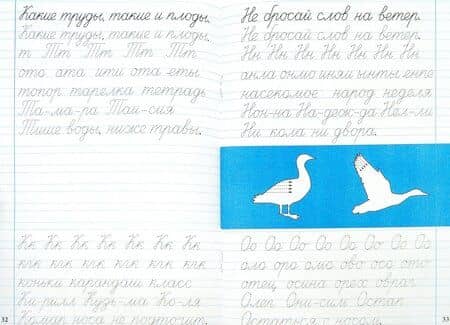 Какие труды, такие и плоды.
Какие труды, такие и плоды.
т Тт Тт Тт Тт
ото ата ити ота еты
топор тарелка тетрадь
Та-ма-ра Таи-сия
Тише воды, ниже травы.
Кк Кк Кк Кк Кк Кк
ккк ккк ккк ккк ккк ккк
коньки карандаш класс
Ки-рилл Кузь-ма Ко-ля
Комар носа не подточит.
32
Не бросай слов на ветер.
Не бросай слов на ветер.
Нн Нн Нн Нн Нн Нн Нн
анла онмо иняи ынты енпе
насекомое народ неделя
Нон-на На-деж-да Нел-ли
Ни кола ни двора.
Оо Оо Оо Оо Оо Оо Оо
оло оро омо ово осо ото
отец осина орех овраг
Олег Они-сим Остап
Остаться с носом.
33